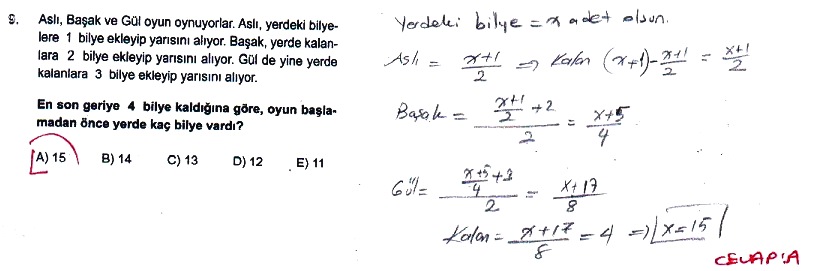 9. Aslı, Başak ve Gül oyun oynuyorlar. Aslı, yerdeki bilye-
lere 1 bilye ekleyip yarısını alıyor. Başak, yerde kalan-
lara 2 bilye ekleyip yarısını alıyor. Gül de yine yerde
kalanlara 3 bilye ekleyip yarısını alıyor.
En son geriye 4 bilye kaldığına göre, oyun başla-
madan önce yerde kaç bilye vardı?
A) 15 B) 14 C) 13 D) 12 E) 11
Yerdeki bilye = x adet olsun.
Aslı = (x+1)/2 ⇒ Kalan (x+1) - (x+1)/2 = (x+1)/2
Başak = ((x+1)/2 + 2)/2 = (x+5)/4
Gül = ((x+5)/4 + 3)/2 = (x+17)/8
Kalan = (x+17)/8 = 4 ⇒ x = 15
CEVAP: A